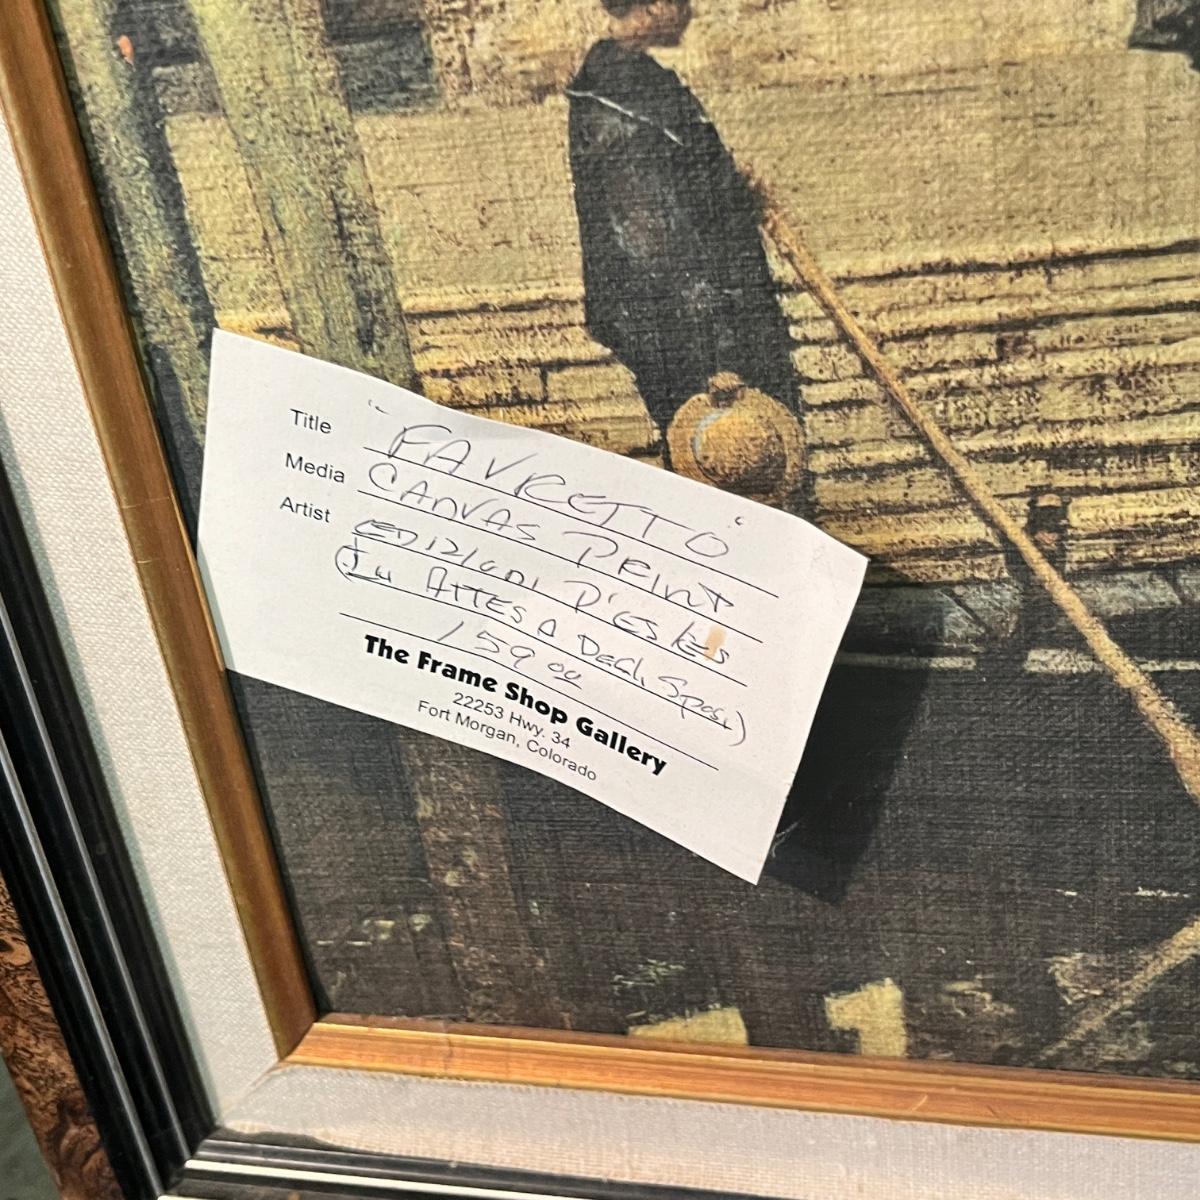 Title "FAVRETTO"
Media CANVAS PRINT
Artist EDIZIONI D'ES
(In ATTESA Degli Sposi)
159 00
The Frame Shop Gallery
22253 Hwy. 34
Fort Morgan, Colorado